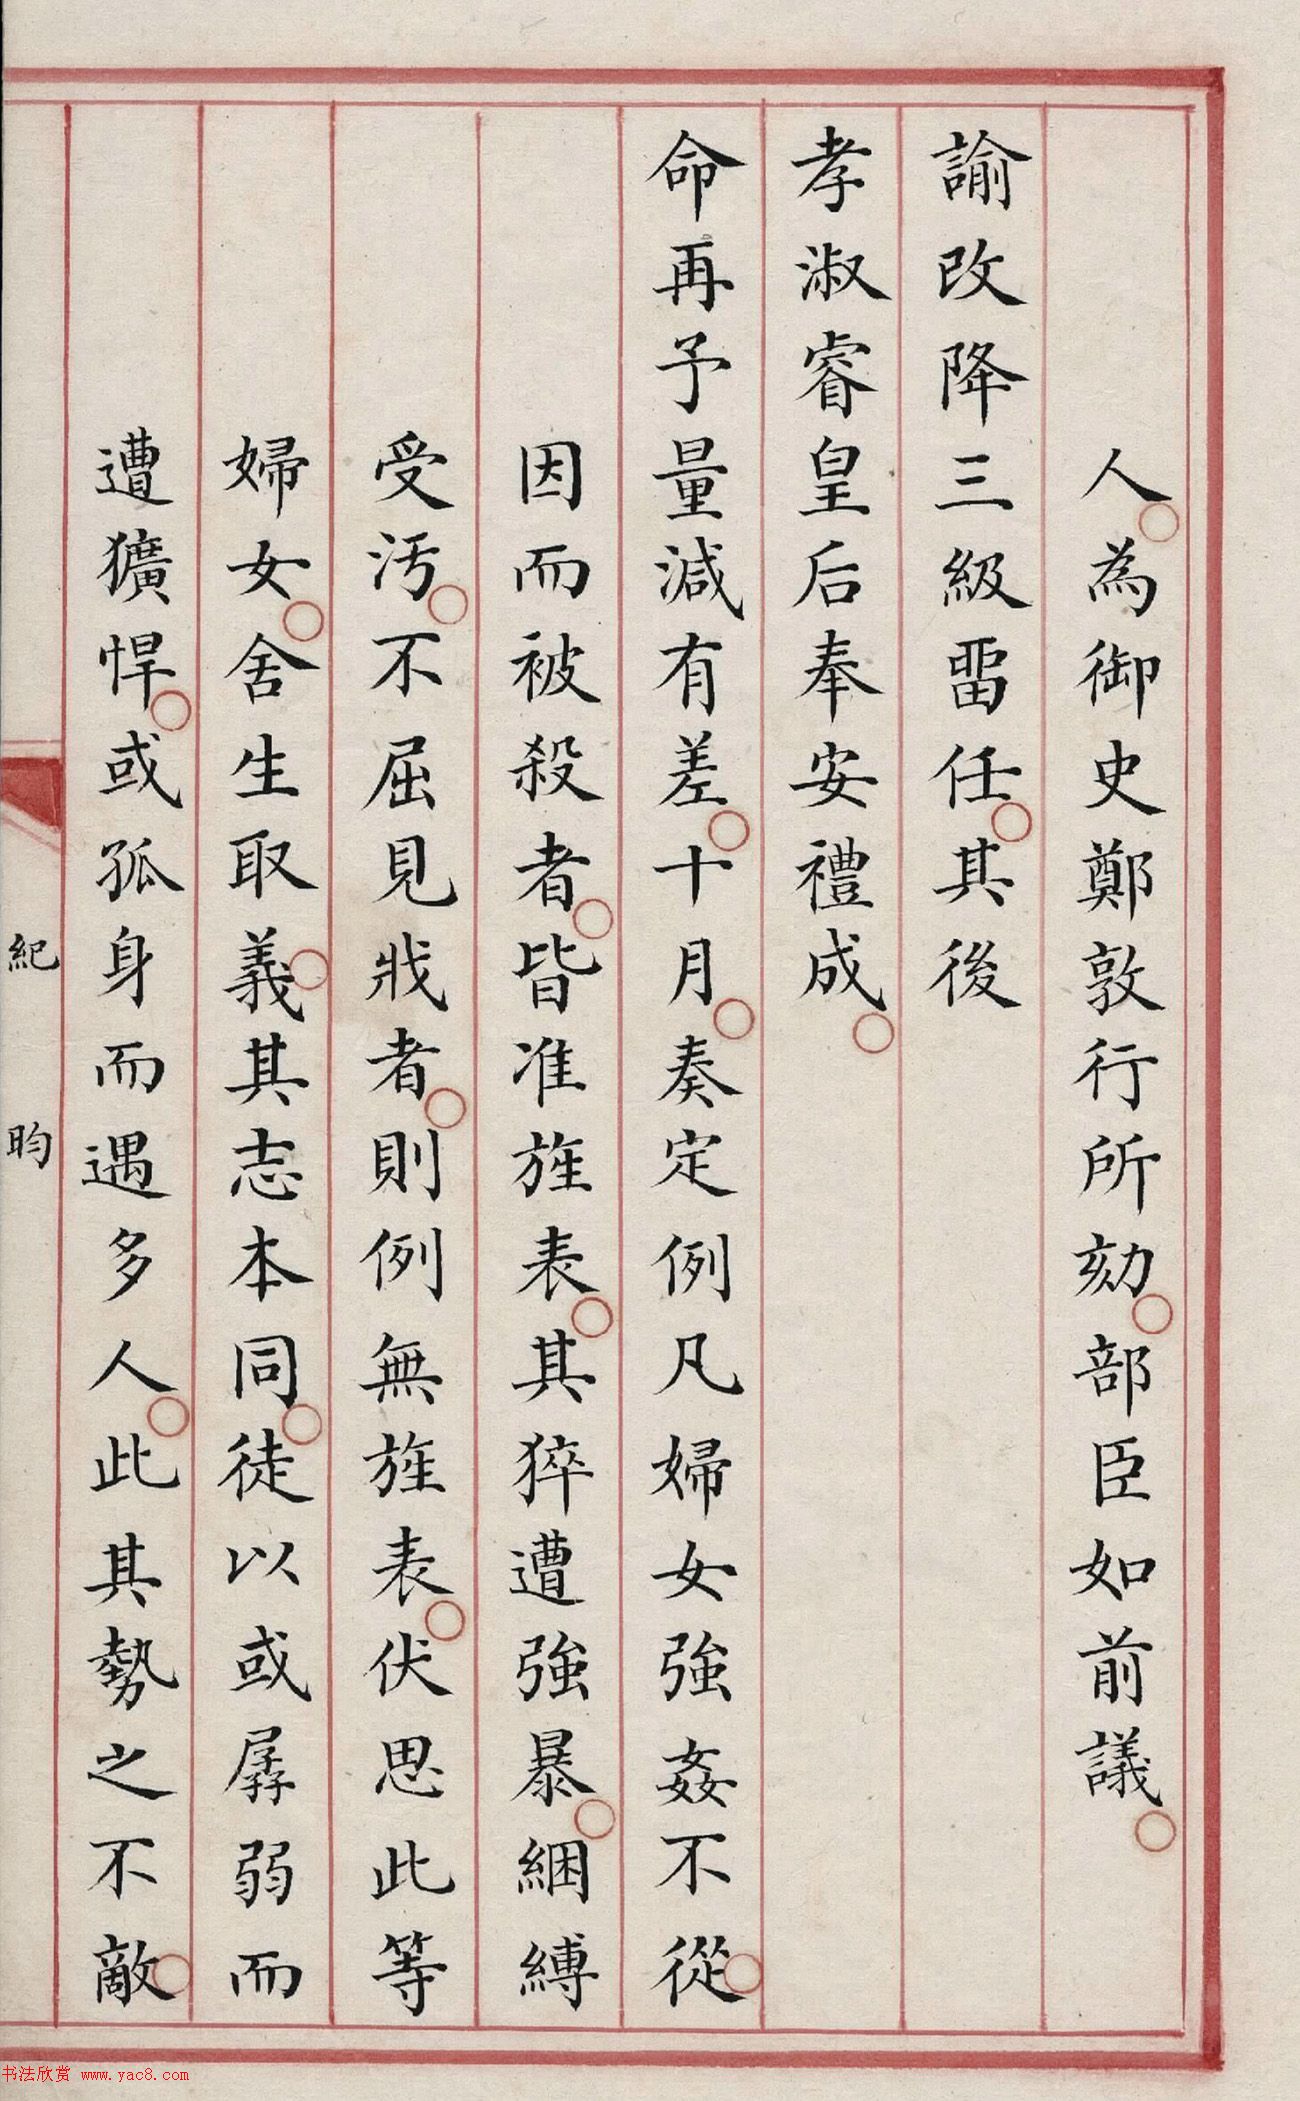 人為御史鄭敦行所劾部臣如前議
諭改降三級畱任其後
孝淑睿皇后奉安禮成
命再予量減有差十月奏定例凡婦女強姦不從
因而被殺者皆准旌表其猝遭強暴綑縛
受汚不屈見戕者則例無旌表伏思此等
婦女舍生取義其志本同徒以或孱弱而
遭獷悍或孤身而遇多人此其勢之不敵
紀昀
书法欣赏 www.yac8.com